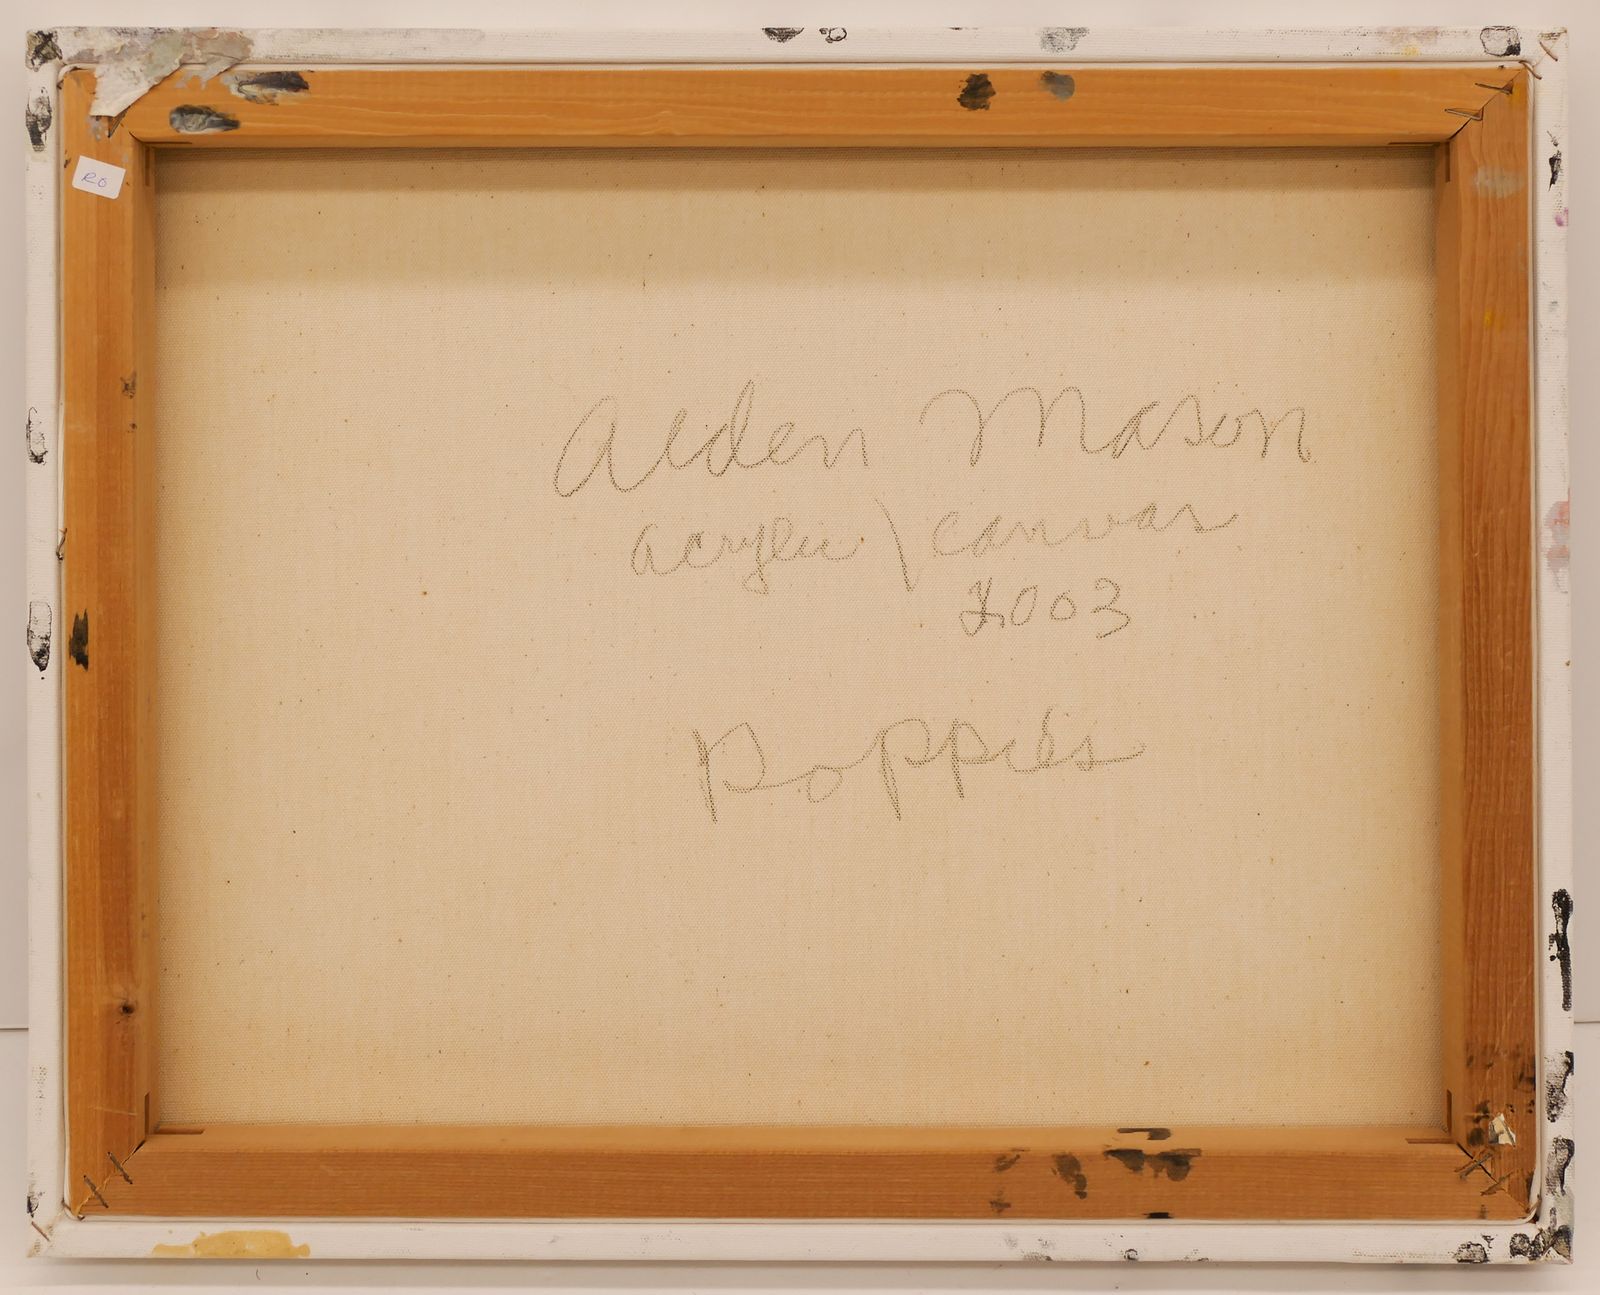 Alden Mason
acrylic \ canvas
2003
Poppies